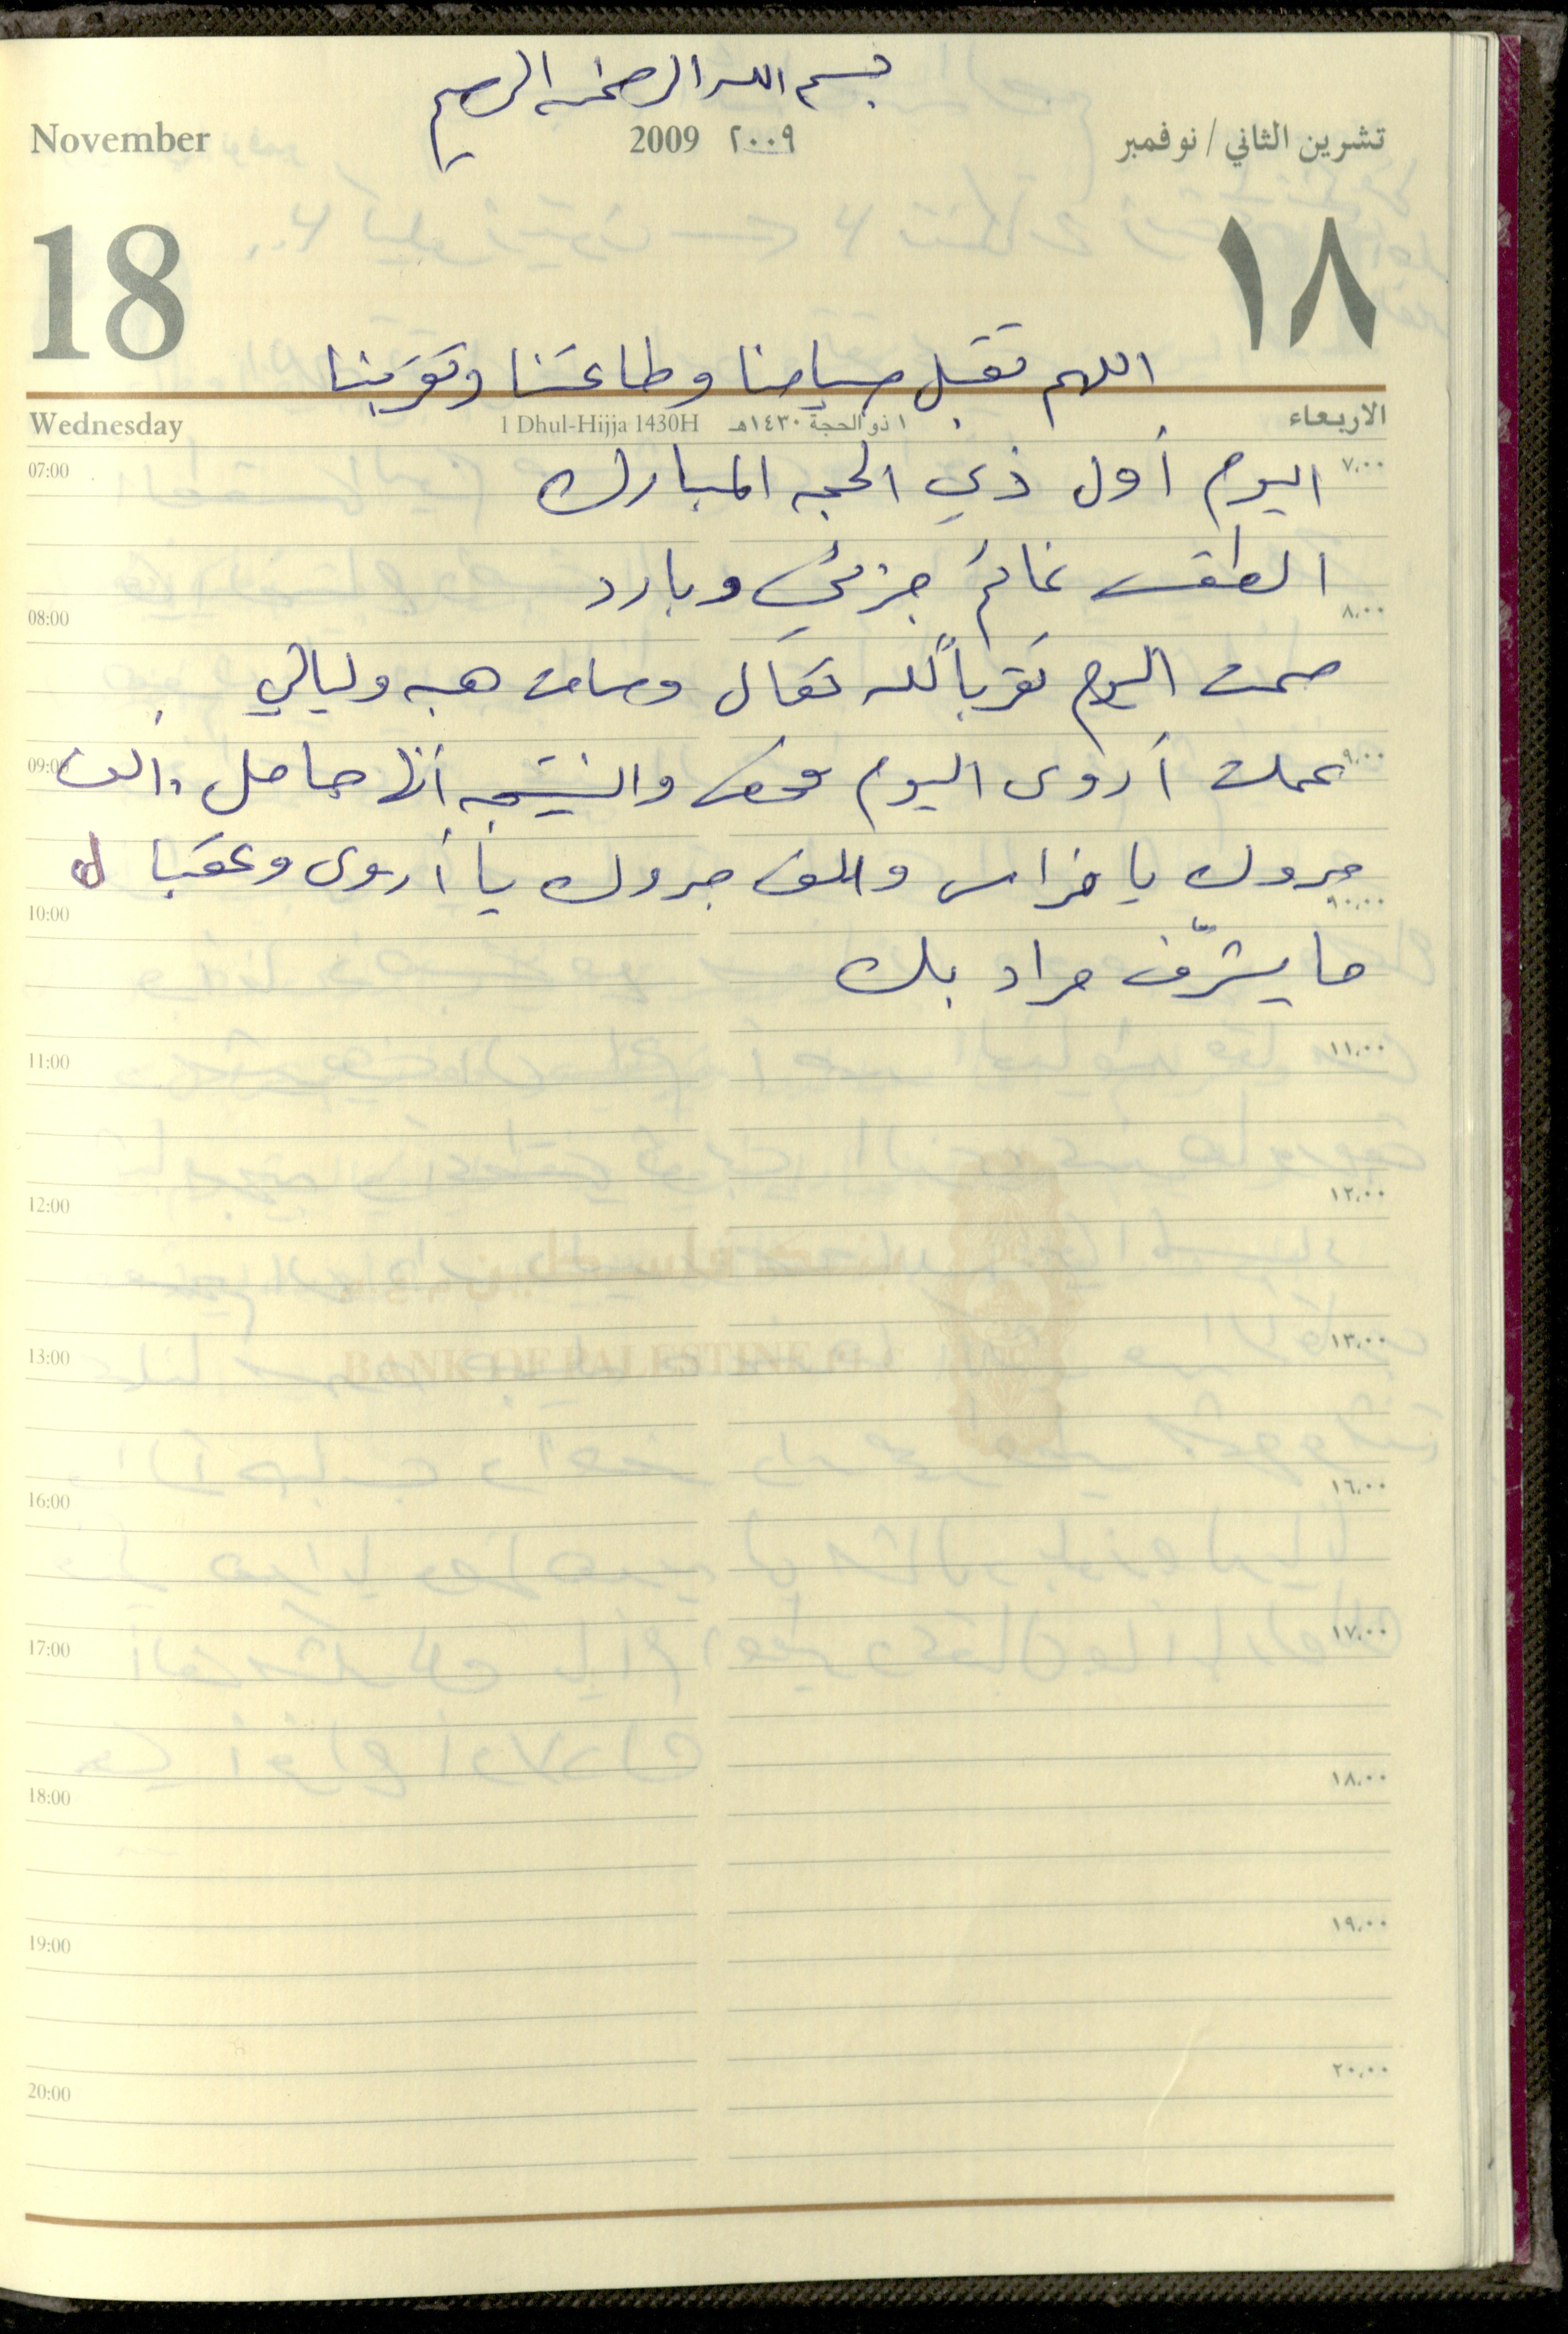 بسم الله الرحمن الرحيم
November 2009 ٢٠٠٩ تشرين الثاني / نوفمبر
18 ١٨
اللهم تقبل صيامنا وطاعتنا وتقربنا
Wednesday 1 Dhul-Hijja 1430H ١ ذو الحجة ١٤٣٠هـ الاربعاء
07:00 ٧،٠٠
اليوم أول ذي الحجه المبارك
الطقس غائم جزئي وبارد
08:00 ٨،٠٠
صمت اليوم تقرباً لله تعال وصامت هبه وليالي
09:00 ٩،٠٠
عملت أروى اليوم فحص والنتيجه أنها حامل والف
مبروك يا فراس والف مبروك يا أروى وعقبا ل
10:00 ١٠،٠٠
ما يشرّف مراد بك
11:00 ١١،٠٠
12:00 ١٢،٠٠
BANK OF PALESTINE
13:00 ١٣،٠٠
16:00 ١٦،٠٠
17:00 ١٧،٠٠
18:00 ١٨،٠٠
19:00 ١٩،٠٠
20:00 ٢٠،٠٠